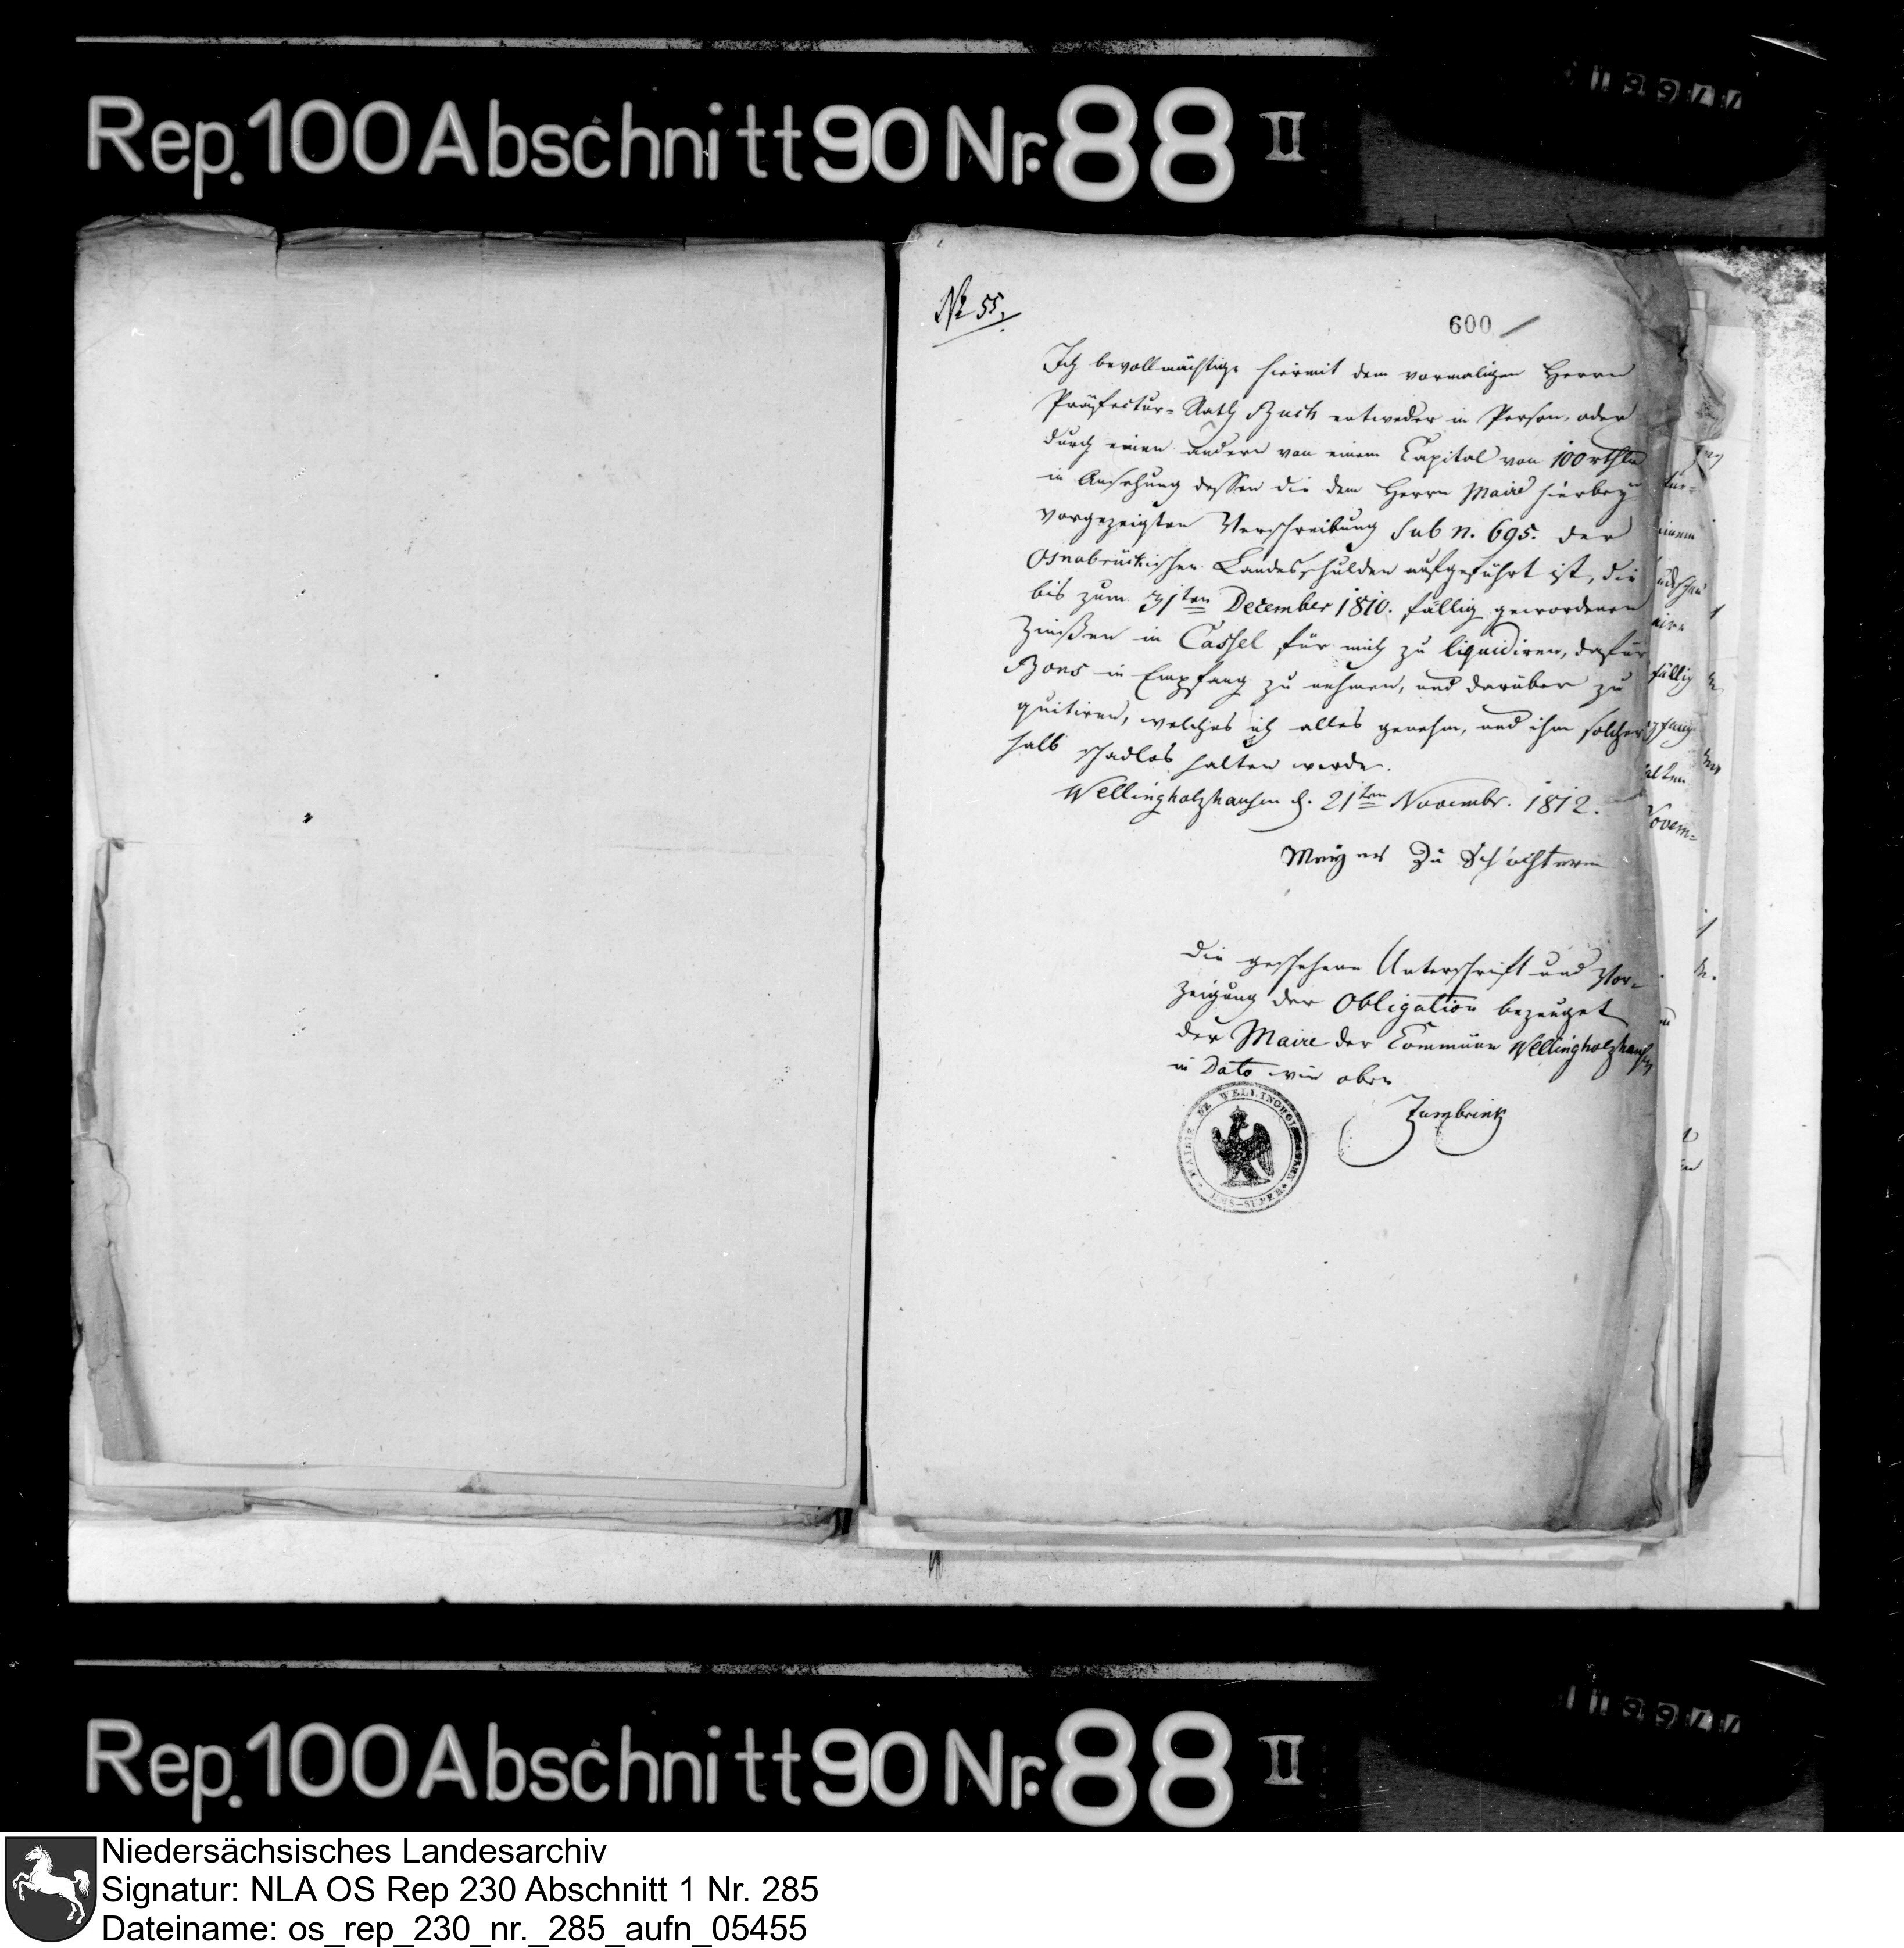 Rep. 100 Abschnitt 90 Nr. 88 II
No 55.
600
Ich bevollmächtige hiermit dem vormaligen Herrn
Präfectur-Rath Buch entweder in Person, oder
durch einen andern von einem Capital von 100 rthlr
in Ansehung dessen die dem Herrn Maire hierbey
vorgezeigten Verschreibung sub n. 695. der
Osnabrückischen Landesschulden aufgeführt ist, die
bis zum 31ten December 1810. fällig gewordenen
Zinßen in Cassel für mich zu liquidiren, dafür
Bons in Empfang zu nehmen, und darüber zu
quitiren, welches ich alles genehm, und ihn solcher
halb schadlos halten werde.
Wellingholzhausen d. 21ten Novembr. 1812.
Meyer Zu
Die geschehene Unterschrift und Vor-
zeigung der Obligation bezeuget
der Maire der Commune Wellingholzhausen
in Dato wie oben
Zumbrink
MAIRIE WELLINGHOLZ EMS-SUPER
Rep. 100 Abschnitt 90 Nr. 88 II
Niedersächsisches Landesarchiv
Signatur: NLA OS Rep 230 Abschnitt 1 Nr. 285
Dateiname: os_rep_230_nr._285_aufn_05455